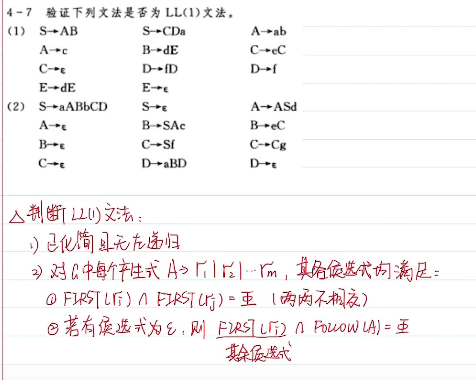 4-7 验证下列文法是否为 LL(1)文法。
(1) S→AB S→CDa A→ab
A→c B→dE C→eC
C→ε D→fD D→f
E→dE E→ε
(2) S→aABbCD S→ε A→ASd
A→ε B→SAc B→eC
B→ε C→Sf C→Cg
C→ε D→aBD D→ε
△判断LL(1)文法:
1) 已化简且无左递归
2) 对G中每个产生式 A→r₁|r₂|…rₘ, 其各侯选式均满足:
① FIRST(rᵢ) ∩ FIRST(rⱼ) = 亚 (两两不相交)
② 若有侯选式为ε, 则 FIRST(rᵢ) ∩ FOLLOW(A) = 亚
其余侯选式